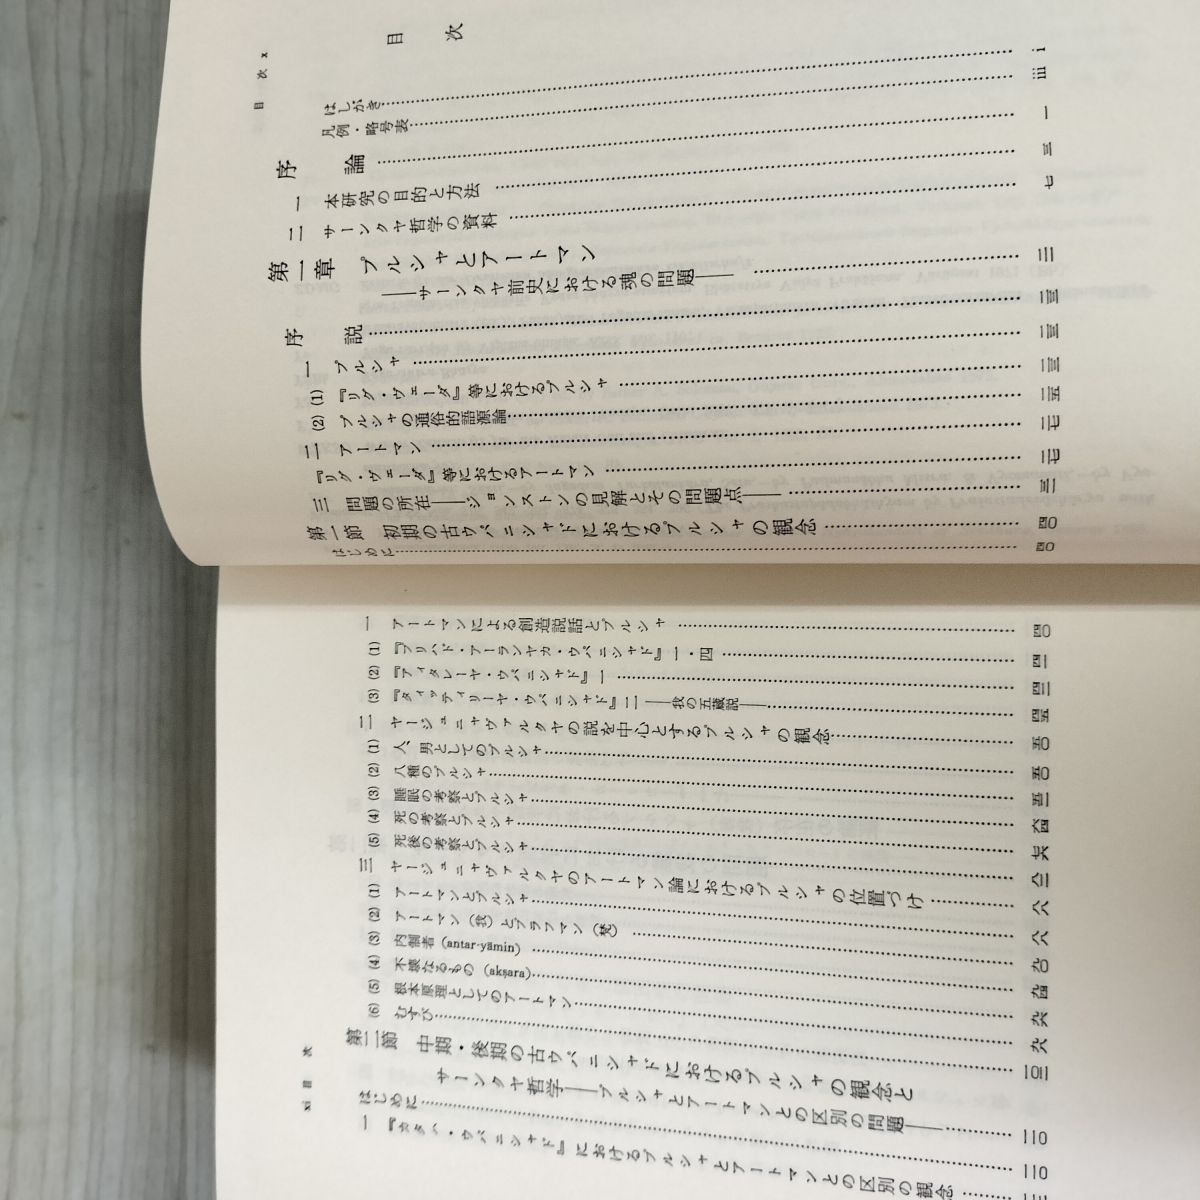 目　次　x
目　次
はしがき……i
凡例・略号表……iii
序　論……一
一　本研究の目的と方法……三
二　サーンクヤ哲学の資料……七
第一章　プルシャとアートマン
――サーンクヤ前史における魂の問題――……三
序　説……三
一　プルシャ……三
(1)　『リグ・ヴェーダ』等におけるプルシャ……三
(2)　プルシャの通俗的語源論……二五
二　アートマン……二七
『リグ・ヴェーダ』等におけるアートマン……二七
三　問題の所在――ジョンストンの見解とその問題点――……三一
第一節　初期の古ウパニシャドにおけるプルシャの観念……四〇
はじめに……四〇
一　アートマンによる創造説話とプルシャ……四〇
(1)　『ブリハド・アーランヤカ・ウパニシャド』一・四……四一
(2)　『アイタレーヤ・ウパニシャド』一……四三
(3)　『タイッティリーヤ・ウパニシャド』二――我の五蔵説――……四五
二　ヤージュニャヴァルクヤの説を中心とするプルシャの観念……五〇
(1)　人、男としてのプルシャ……五〇
(2)　八種のプルシャ……五一
(3)　睡眠の考察とプルシャ……六四
(4)　死の考察とプルシャ……七六
(5)　死後の考察とプルシャ……八二
三　ヤージュニャヴァルクヤのアートマン論におけるプルシャの位置づけ……八八
(1)　アートマンとプルシャ……八八
(2)　アートマン（我）とブラフマン（梵）……九〇
(3)　内制者（antar-yāmin）……九四
(4)　不壊なるもの（akṣara）……九六
(5)　根本原理としてのアートマン……九八
(6)　むすび……一〇三
第二節　中期・後期の古ウパニシャドにおけるプルシャの観念と
サーンクヤ哲学――プルシャとアートマンとの区別の問題――……一一〇
はじめに……一一〇
一　『カタハ・ウパニシャド』におけるプルシャとアートマンとの区別の観念
目　次　xi